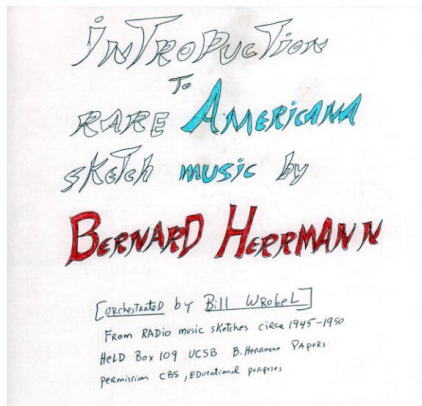 iNTRODUCTION
To
RARE AMERICANA
SKETCH music by
BERNARD HERRMANN
[orchestrated by Bill WRobeL]
From RADio music sketches circa 1945-1950
HeLD Box 109 UCSB B. Herrmann Papers
permission CBS, EDucational purposes